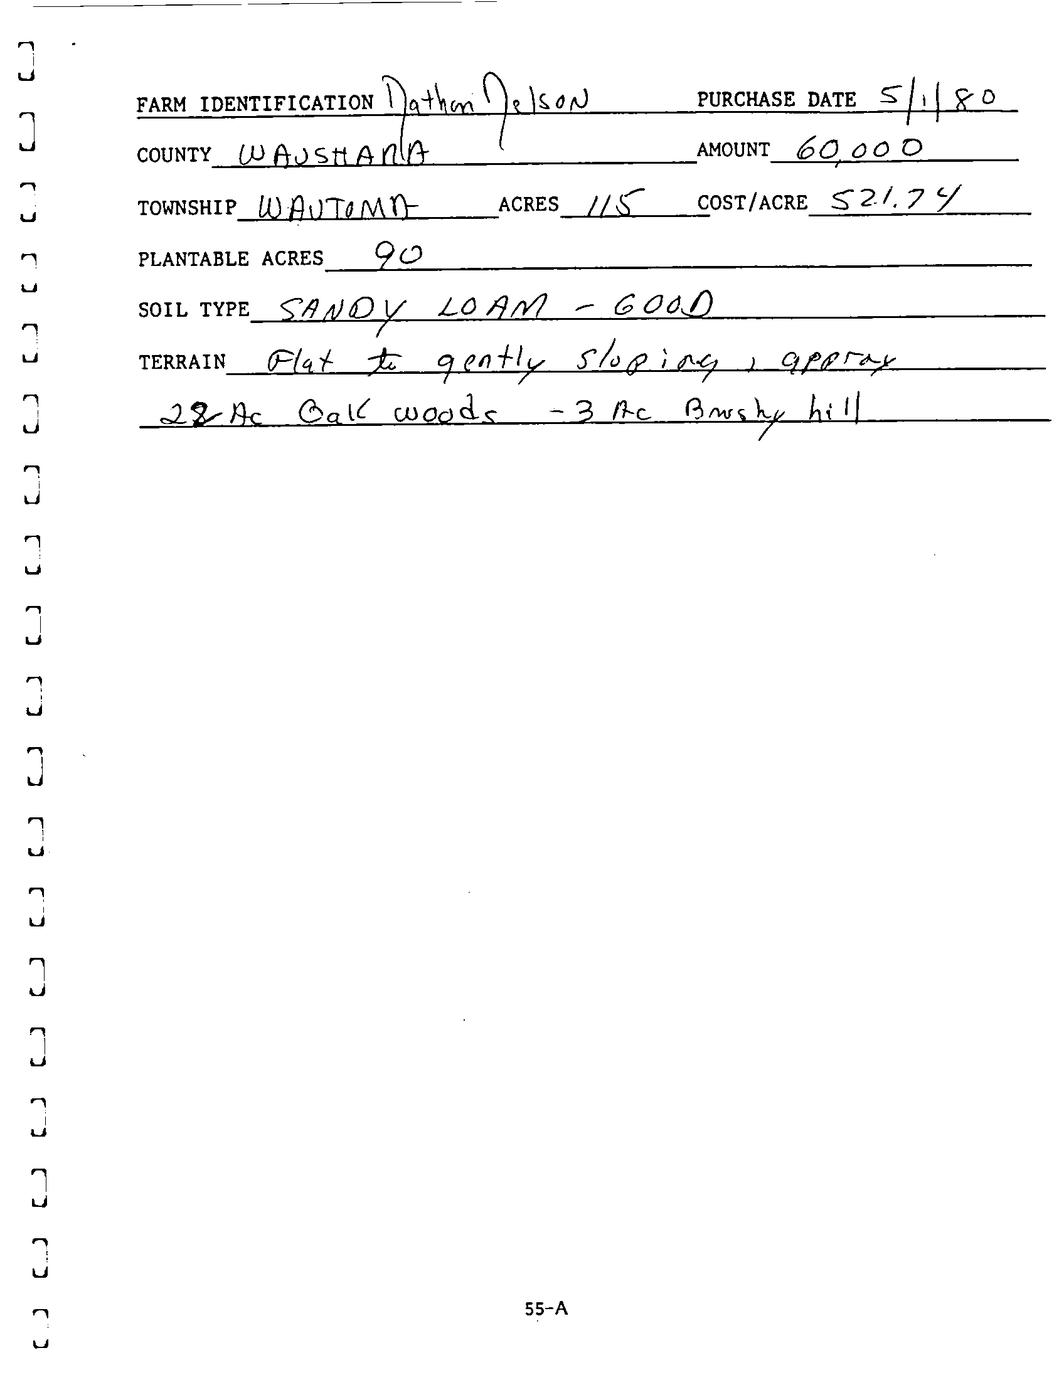 FARM IDENTIFICATION Nathan Nelson PURCHASE DATE 5/1/80
COUNTY WAUSHARA AMOUNT 60,000
TOWNSHIP WAUTOMA ACRES 115 COST/ACRE 521.74
PLANTABLE ACRES 90
SOIL TYPE SANDY LOAM - GOOD
TERRAIN Flat to gently sloping, approx
28 Ac Oak woods - 3 Ac Brushy hill
55-A